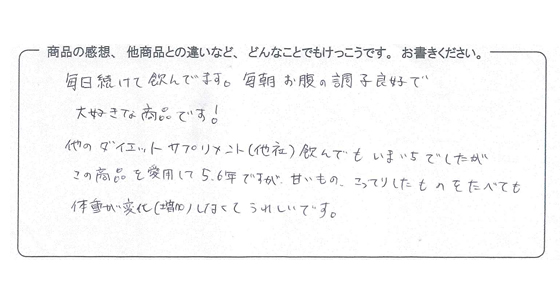 商品の感想、他商品との違いなど、どんなことでもけっこうです。お書きください。
毎日続けて飲んでます。毎朝お腹の調子良好で
大好きな商品です!
他のダイエットサプリメント(他社)飲んでもいまいちでしたが
この商品を愛用して5.6年ですが、甘いもの、こってりしたものをたべても
体重が変化(増加)しなくてうれしいです。